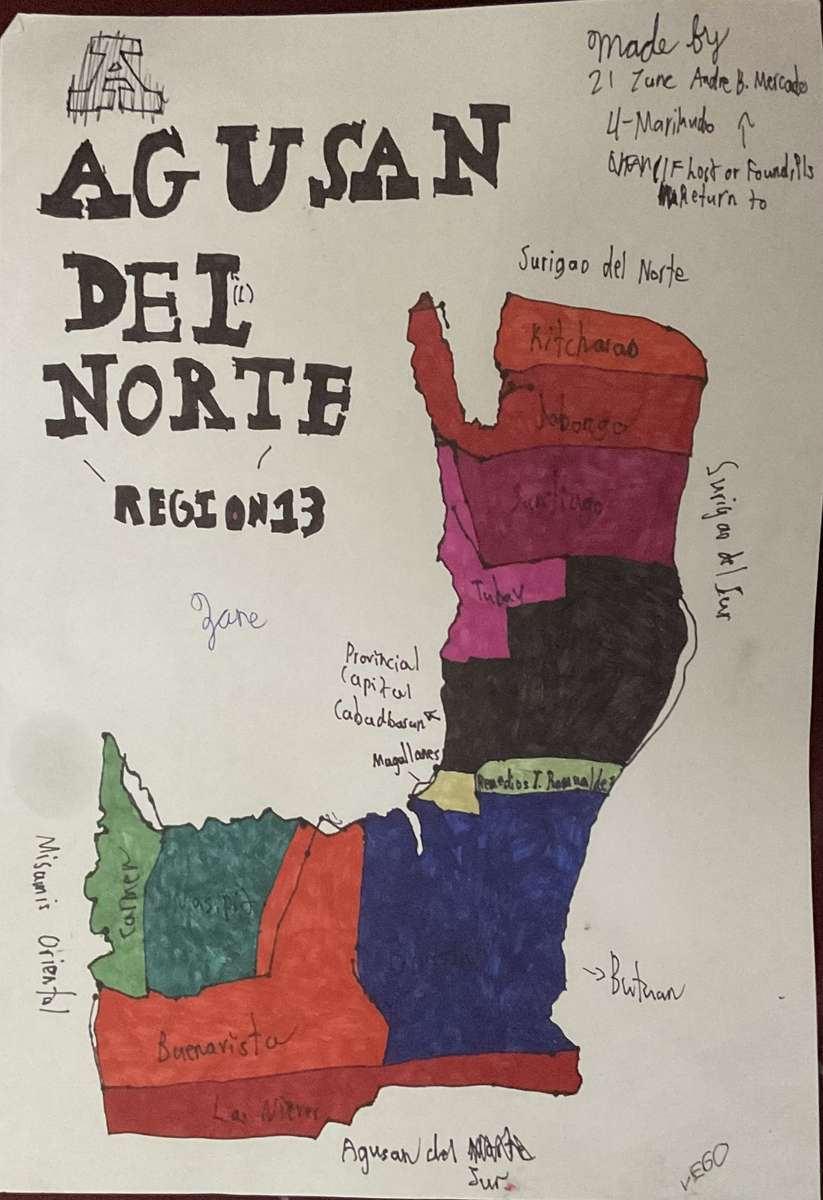 A
Made by
21 Zane Andre B. Mercado
4-Marikudo ↑
If Lost or Found, Pls
Return to
AGUSAN
DEL
(L)
NORTE
REGION 13
Zane
Surigao del Norte
Kitcharao
Jabonga
Santiago
Surigao del Sur
Tubay
Provincial
Capital
Cabadbaran
Magallanes
Remedios T. Romualdez
Misamis Oriental
Carmen
Nasipit
Butuan
Buenavista
Las Nieves
Agusan del
Sur